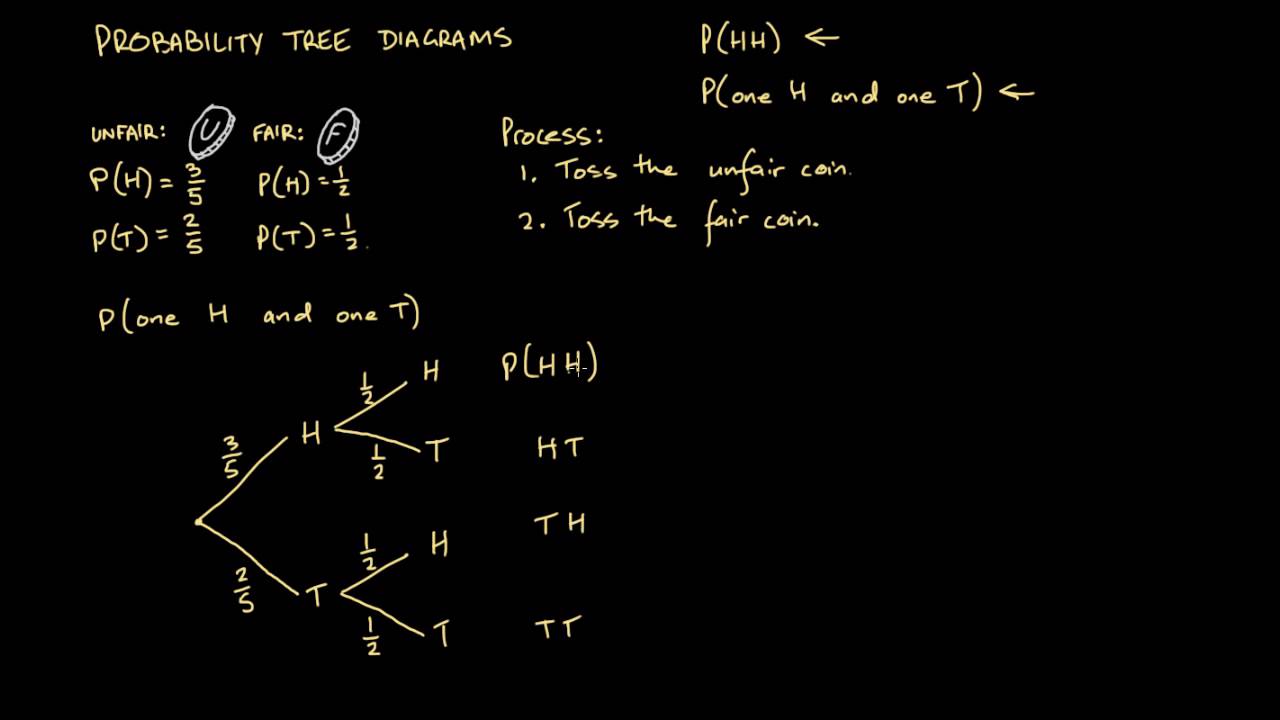 PROBABILITY TREE DIAGRAMS
P(HH) ←
P(one H and one T) ←
UNFAIR: U FAIR: F
P(H) = 3/5 P(H) = 1/2
P(T) = 2/5 P(T) = 1/2.
Process:
1. Toss the unfair coin.
2. Toss the fair coin.
P(one H and one T)
1/2 H P(HH)
3/5 H
1/2 T HT
1/2 H TH
2/5 T
1/2 T TT